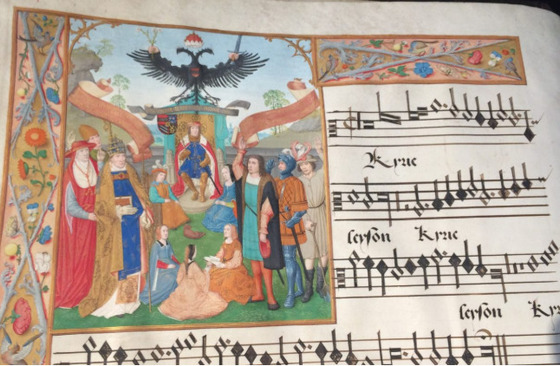 Kyrie
leyson Kyrie
leyson Kyr